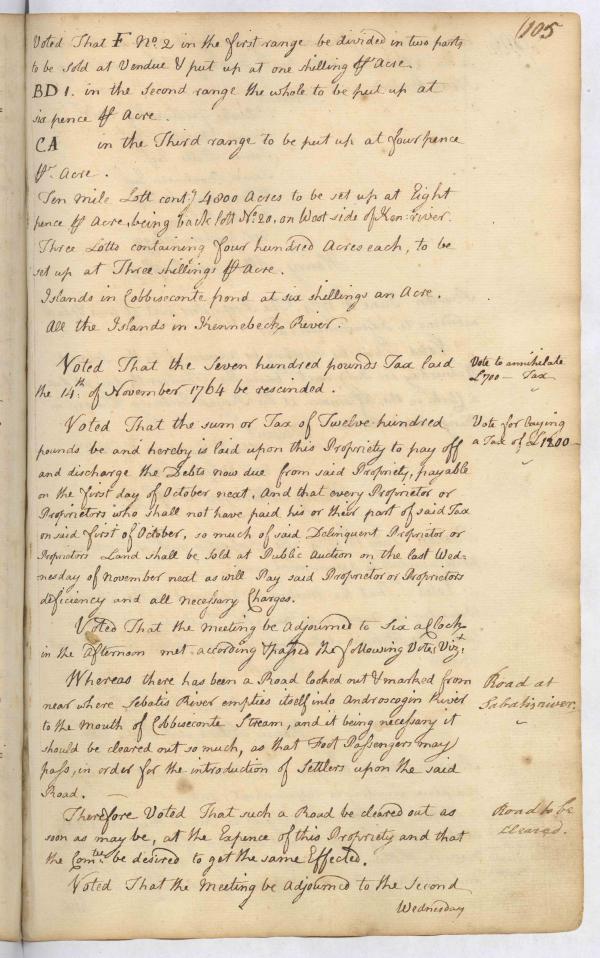 105
Voted That F No. 2 in the first range be divided in two parts
to be sold at Vendue & put up at one shilling ⅌ Acre.
BD 1. in the second range the whole to be put up at
six pence ⅌ Acre.
CA in the Third range to be put up at four pence
⅌r. Acre.
Ten mile Lott contg. 4800 Acres to be set up at Eight
pence ⅌ Acre, being back lott No. 20, on West side of Ken: river.
Three Lotts containing four hundred Acres each, to be
set up at Three shillings ⅌ Acre.
Islands in Cobbiseconte pond at six shillings an Acre.
All the Islands in Kennebeck River.
Voted That the Seven hundred pounds Tax laid
the 14th. of November 1764 be rescinded.
Vote to annihilate
£700 — Tax
Voted That the sum or Tax of Twelve hundred
pounds be and hereby is laid upon this Propriety to pay off
and discharge the Debts now due from said Propriety, payable
on the first day of October next, And that every Proprietor or
Proprietors who shall not have paid his or their part of said Tax
on said first of October, so much of said Delinquent Proprietor or
Proprietors Land shall be sold at Public Auction on the last Wed=
nesday of November next as will Pay said Proprietor or Proprietors
deficiency and all necessary Charges.
Vote for laying
a Tax of £1200 —
Voted That the meeting be adjourned to Six a Clock
in the afternoon met according & passed the following Votes Vizt.
Whereas there has been a Road looked out & marked from
near where Sebatis River empties itself into Androscogin River
to the mouth of Cobbiseconte Stream, and it being necessary it
should be cleared out so much, as that Foot Passengers may
pass, in order for the introduction of Settlers upon the said
Road.
Road at
Sabatis river.
Therefore Voted That such a Road be cleared out as
soon as may be, at the Expence of this Propriety and that
the Comtee. be desired to get the same Effected.
Road to be
cleared.
Voted That the Meeting be Adjourned to the Second
Wednesday